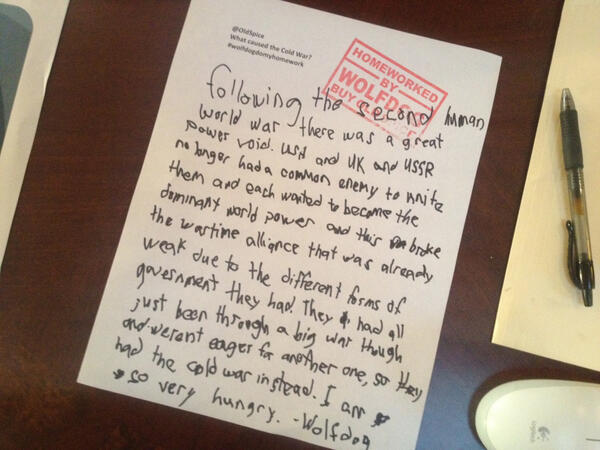 @OldSpice
What caused the Cold War?
#wolfdogdomyhomework
HOMEWORKED
BY
WOLFDOG
BUY OLD SPICE
following the second human
world war there was a great
power void. USA and UK and USSR
no longer had a common enemy to unite
them and each wanted to become the
dominant world power and this broke
the wartime alliance that was already
weak due to the different forms of
government they had. They had all
just been through a big war though
and werent eager for another one, so they
had the cold war instead. I am
so very hungry. -Wolfdog
logitech